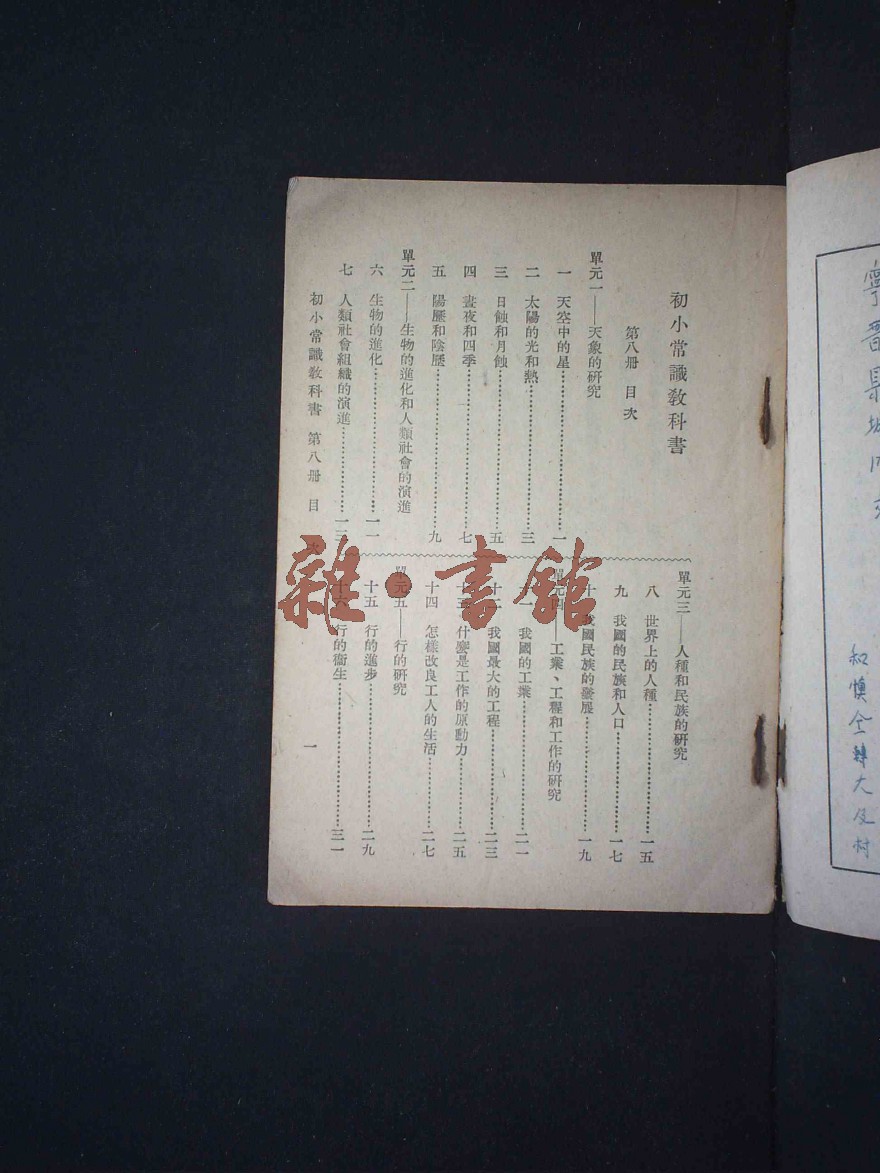 初小常識教科書
第八冊 目次
單元一——天象的研究
一 天空中的星……………一
二 太陽的光和熱……………三
三 日蝕和月蝕……………五
四 晝夜和四季……………七
五 陽歷和陰歷……………九
單元二——生物的進化和人類社會的演進
六 生物的進化……………一一
七 人類社會組織的演進……………一三
單元三——人種和民族的研究
八 世界上的人種……………一五
九 我國的民族和人口……………一七
十 我國民族的發展……………一九
單元四——工業、工程和工作的研究
十一 我國的工業……………二一
十二 我國最大的工程……………二三
十三 什麼是工作的原動力……………二五
十四 怎樣改良工人的生活……………二七
單元五——行的研究
十五 行的進步……………二九
十六 行的衞生……………三一
初小常識教科書 第八冊 目次
一
雜·書館
寧晉縣城內
大及村